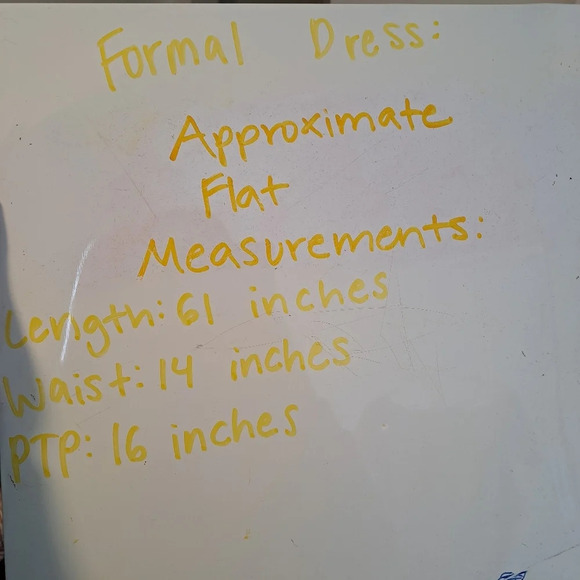 Formal Dress:
Approximate
Flat
Measurements:
Length: 61 inches
Waist: 14 inches
PTP: 16 inches